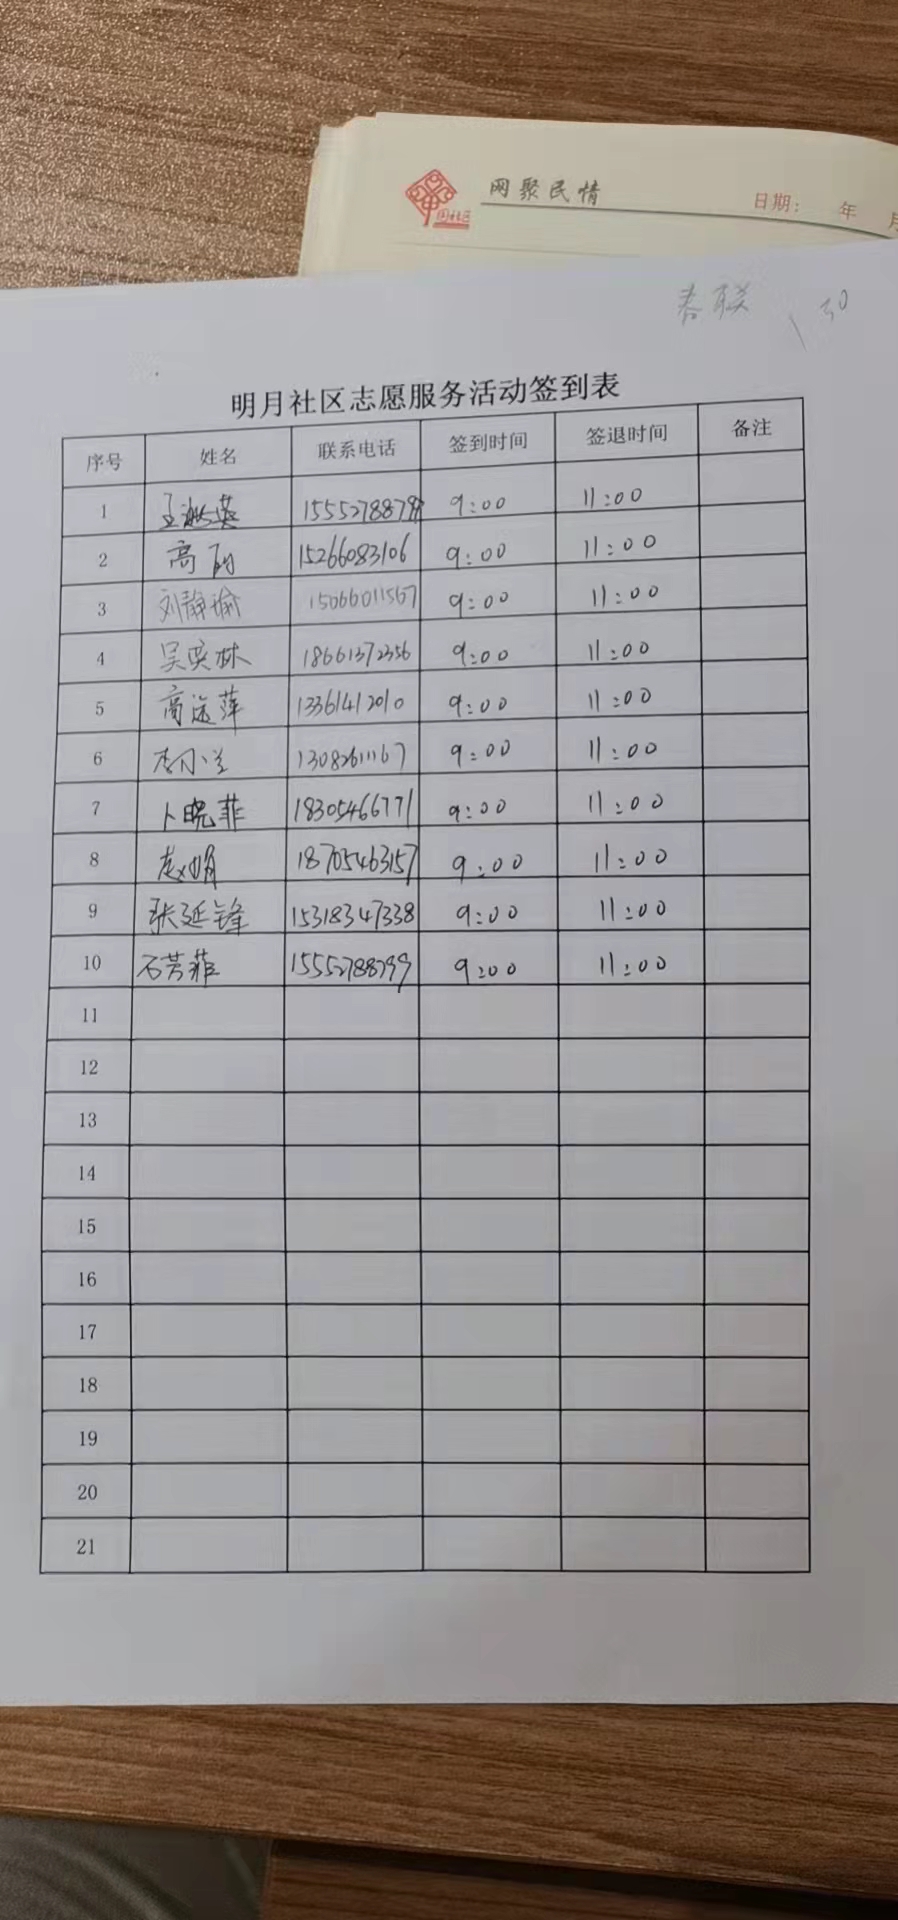 网聚民情
日期： 年 月
春联 1 30
明月社区志愿服务活动签到表
序号 姓名 联系电话 签到时间 签退时间 备注
1 王洪英 9:00 11:00
2 高 15266083106 9:00 11:00
3 刘静瑜 15066011567 9:00 11:00
4 吴奕林 18661372356 9:00 11:00
5 高 萍 13361412010 9:00 11:00
6 李小兰 13082611167 9:00 11:00
7 卜晓菲 18305466771 9:00 11:00
8 赵娟 18705463157 9:00 11:00
9 张延锋 15318347338 9:00 11:00
10 石芳菲 15552788799 9:00 11:00
11
12
13
14
15
16
17
18
19
20
21